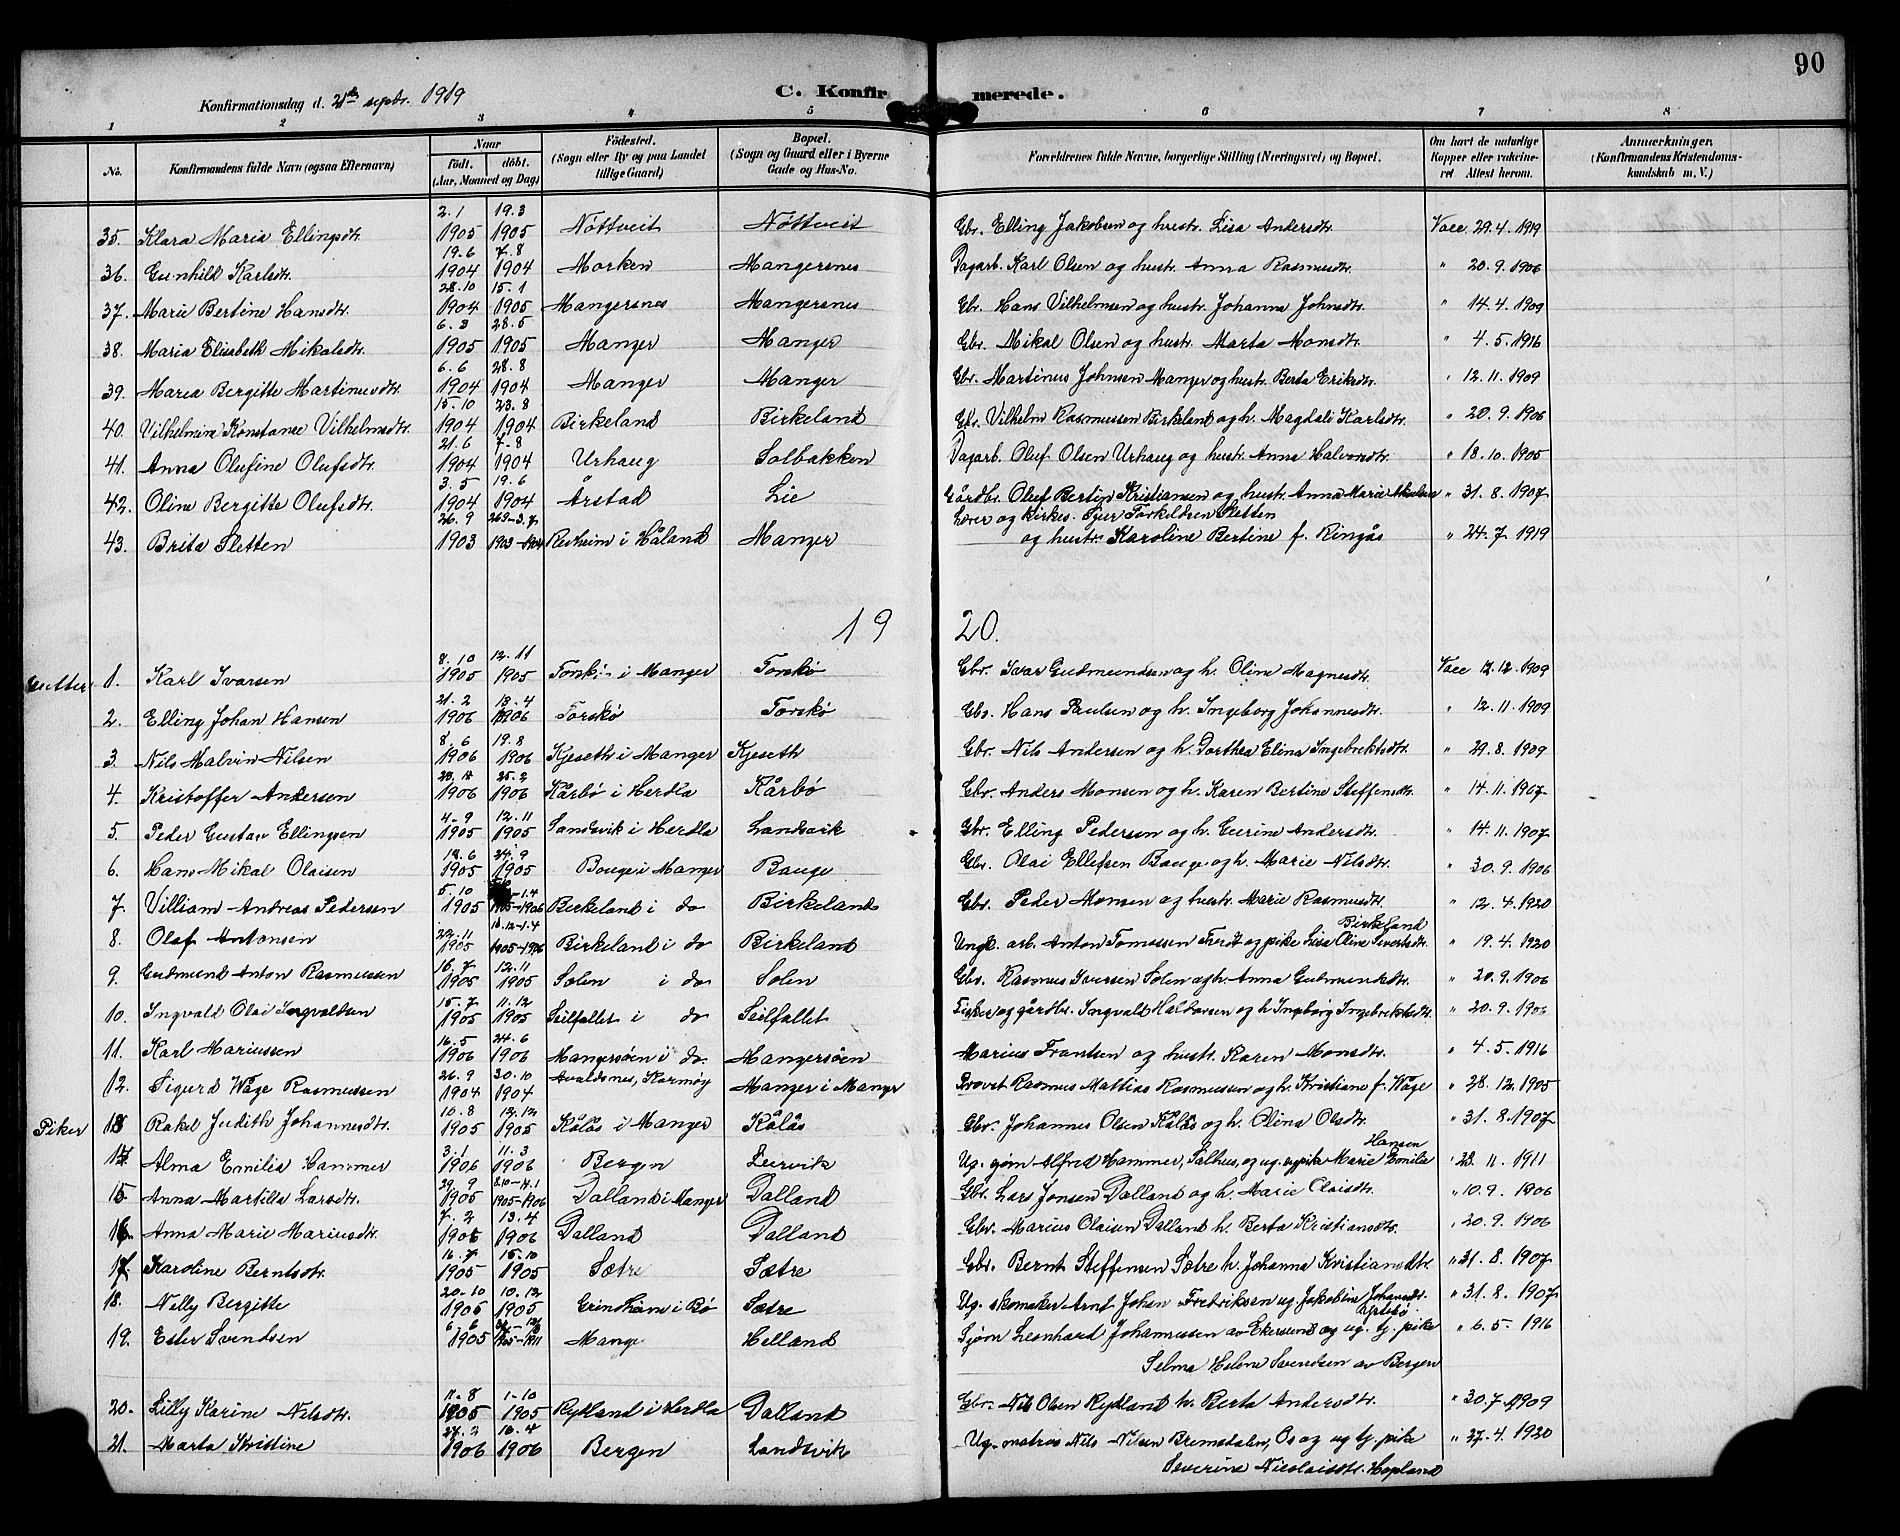 90
Konfirmationsdag d. 21de septbr. 1919
C. Konfirmerede.
1 2 3 4 5 6 7 8
No. Konfirmandens fulde Navn (ogsaa Efternavn) Naar født. døbt. (Aar, Maaned og Dag) Fødested. (Sogn eller By og paa Landet tillige Gaard) Bopæl. (Sogn og Gaard eller i Byerne Gade og Hus-No. Forældrenes fulde Navne, borgerlige Stilling (Næringsvei) og Bopæl. Om havt de naturlige Kopper eller vaccineret Attest herom. Anmærkninger. (Konfirmandens Kristendomskundskab m. V.)
35. Klara Maria Ellingsdtr. 2.1 1905 19.3 1905 Nöttveit Nöttveit Gbr. Elling Jakobsen og hustr. Lisa Andersdtr. Vacc 29.4.1919
36. Gunhild Karlsdtr. 19.6 1904 7.8 1904 Morken Mangersnes Dagarb. Karl Olsen og hustr. Anna Rasmusdtr. " 20.9.1906
37. Marie Bertine Hansdtr. 28.10 1904 15.1 1905 Mangersnes Mangersnes Gbr. Hans Vilhelmsen og hustr. Johanna Johnsdtr. " 14.4.1909
38. Maria Elisabeth Mikalsdtr. 6.3 1905 28.5 1905 Manger Manger Gbr. Mikal Olsen og hustr. Marta Monsdtr. " 4.5.1916
39. Maria Bergitte Martinusdtr. 6.6 1904 28.8 1904 Manger Manger Gbr. Martinus Johnsen Manger og hustr. Berta Eriksdtr. " 12.11.1909
40. Vilhelmine Konstanse Vilhelmsdtr. 15.10 1904 23.8 1904 Birkeland Birkeland Gbr. Vilhelm Rasmussen Birkeland og h. Magdali Karlsdtr. " 20.9.1906
41. Anna Olufine Olufsdtr. 21.6 1904 7-8 1904 Urhaug Solbakken Dagarb. Oluf Olsen Urhaug og hustr. Anna Halvorsdtr. " 18.10.1905
42. Oline Bergitte Olufsdtr. 3.5 1904 19.6 1904 Årstad Lie Gårdbr. Oluf Bertin Kristiansen og hustr. Anna Marie " 31.8.1907
43. Brita Sletten 26.9 1903 26.9-3.7 1903-1904 Revheim i Håland Manger Lærer og kirkes. Sjur Torkildsen Sletten
og hustr. Karoline Bertine f. Ringås " 24.7 1919
19 20.
Gutter 1. Karl Ivarsen 8.10 1905 12.11 1905 Torskö i Manger Torskö Gbr. Ivar Gudmundsen og h. Oline Magnusdtr. Vacc 12.12.1909
2. Elling Johan Hansen 21.2 1906 13.4 1906 Torskö Torskö Gbr. Hans Paulsen og h. Ingeborg Johannesdtr. " 12.11.1909
3. Nils Malvin Nilsen 8.6 1906 19.8 1906 Kjeseth i Manger Kjeseth Gbr. Nils Andersen og h. Dorthea Elina Ingebrektsdtr. " 29.8.1909
4. Kristoffer Andersen 1906 25.2 1906 Kårbö i Herdla Kårbö Gbr. Anders Monsen og h. Karen Bertine Steffensdtr. " 14.11.1907
5. Peder Gustav Ellingsen 4-9 1905 12.11 1905 Landsvik i Herdla Landsvik Gbr. Elling Pedersen og h. Gurine Andersdtr. " 14.11.1907
6. Hans Mikal Olaisen 18.6 1905 24.9 1905 Bouge i Manger Bauge Gbr. Olai Ellefsen Bauge og h. Marie Nilsdtr. " 30.9.1906
7. Villiam Andreas Pedersen 5.10 1905 -1.4 1905-1906 Birkeland i do Birkeland Gbr. Peder Monsen og hustr. Marie Rasmusdtr. " 12.4.1920
8. Olaf Antonsen 22.11 1905 10.12-1.4 1905-1906 Birkeland i do Birkeland Ungk. arb. Anton Tomassen og pike Lisa Oline Sivertsdtr. Birkeland " 19.4.1920
9. Gudmund Anton Rasmussen 16.7 1905 12.11 1905 Solen i do Solen Gbr. Rasmus Iversen Solen og h. Anna Gudmundsdtr. " 20.9.1906
10. Ingvald Olai Ingvaldsen 15.7 1905 11.12 1905 Seilfallet i do Seilfallet Fisker og gårdbr. Ingvald Haldorsen og h Ingeborg Ingebrektsdtr. " 20.9.1906
11. Karl Mariussen 16.5 1906 24.6 1906 Mangersöen i do. Mangersöen Marius Frantsen og hustr. Karen Monsdtr. " 4.5.1916
12. Sigurd Wåge Rasmussen 26.9 1904 30.10 1904 Avaldsnes, Karmöy Manger i Manger Provst Rasmus Mattias Rasmussen og h. Kristiane f. Wåge " 28.12.1905
Piker 13 Rakel Judith Johannesdtr. 10.8 1905 12.12 1905 Kålås i Manger Kålås Gbr. Johannes Olsen Kålås og h. Olina Olsdtr. " 31.8.1907
14. Alma Emilie Hammer 3.1 1906 11.3 1906 Bergen Leirvik Ug. sjøm Alfred Hammer, Salhus, og ug. pike Marie Emilie Hansen " 23.11.1911
15 Anna Martilla Larsdtr. 29.9 1905 8.10-14.1 1905-1906 Dalland i Manger Dalland Gbr. Lars Jonsen Dalland og h. Marie Olaisdtr. " 10.9.1906
16. Anna Marie Mariusdtr. 7.2 1906 13.4 1906 Dalland Dalland Gbr. Marius Olaisen Dalland h. Berta Kristiansdtr. " 20.9.1906
17. Karoline Berntsdtr. 16.7 1905 15-10 1905 Sætre Sætre Gbr. Bernt Steffensen Sætre h. Johanna Kristiansdtr. " 31.8.1907
18. Nelly Bergitte 20-10 1905 10.12 1905 Grindheim i Bö Sætre Ug. skomaker Arnt Johan Fredriksen ug Jakobine Johansdtr. " 31.8.1907
19. Ester Svendsen 6.6 1905 1905-1911 Mange Helland Sjøm Leonhard Johannessen av Ekersund og ug. tj. pike " 6.5.1916
Selma Helene Svendsen av Bergen
20. Lilly Karine Nilsdtr. 11-8 1905 1-10 1905 Rylland i Herdla Dalland Gbr. Nils Olsen Rylland h. Berta Andersdtr. " 30.7.1909
21. Marta Kristine 24.2 1906 16.4 1906 Bergen Landsvik Ug. matros Nils Nilsen Bremsdalen, Os og ug tj. pike " 27.4.1920
Severine Nicolaisdtr. Hopland